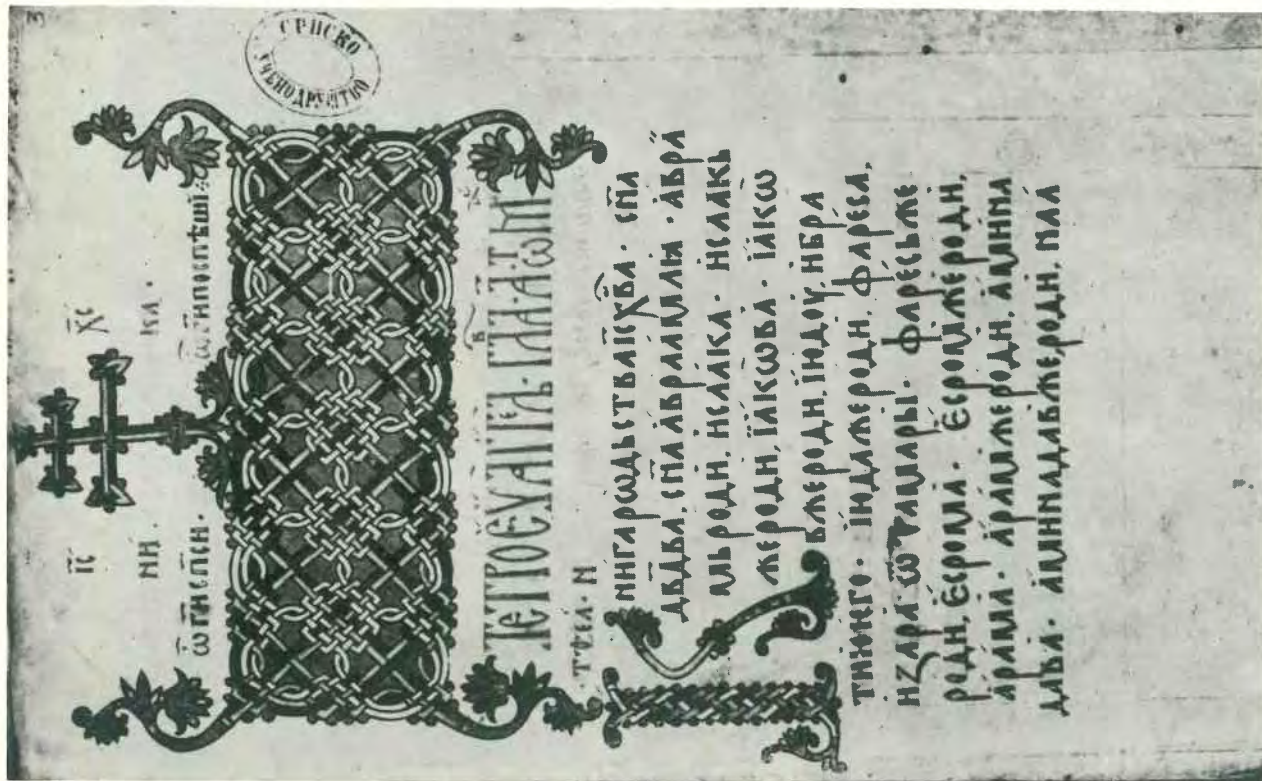 СРПСКО
УЧЕНО ДРУШТВО
І҃С Х҃С
НИ КА ·
ТЕТРОЕѴАГГЕЛ · ГЛА · А
КНИГА РѠДЬСТВА І҃С Х҃ВА · С҃НА
Д҃ВДВА, С҃НА АВРААМЛЯ · АВРА
АМЬ РОДИ, ИСААКА · ИСААКЬ
ЖЕ РОДИ, ІАКѠВА · ІАКѠ
ВЖЕ РОДИ, ІЮДОУ, И БРА
ТИЮ ЕГО · ІЮДА ЖЕ РОДИ, ФАРЕСА,
И ЗАРА Ѿ ΘАМАРЫ · ФАРЕСЬ ЖЕ
РОДИ, ЕСРОМА · ЕСРОМ ЖЕ РОДИ,
АРАМА · АРАМ ЖЕ РОДИ, АМИНА
ДАВА · АМИНАДАВ ЖЕ РОДИ, НАА